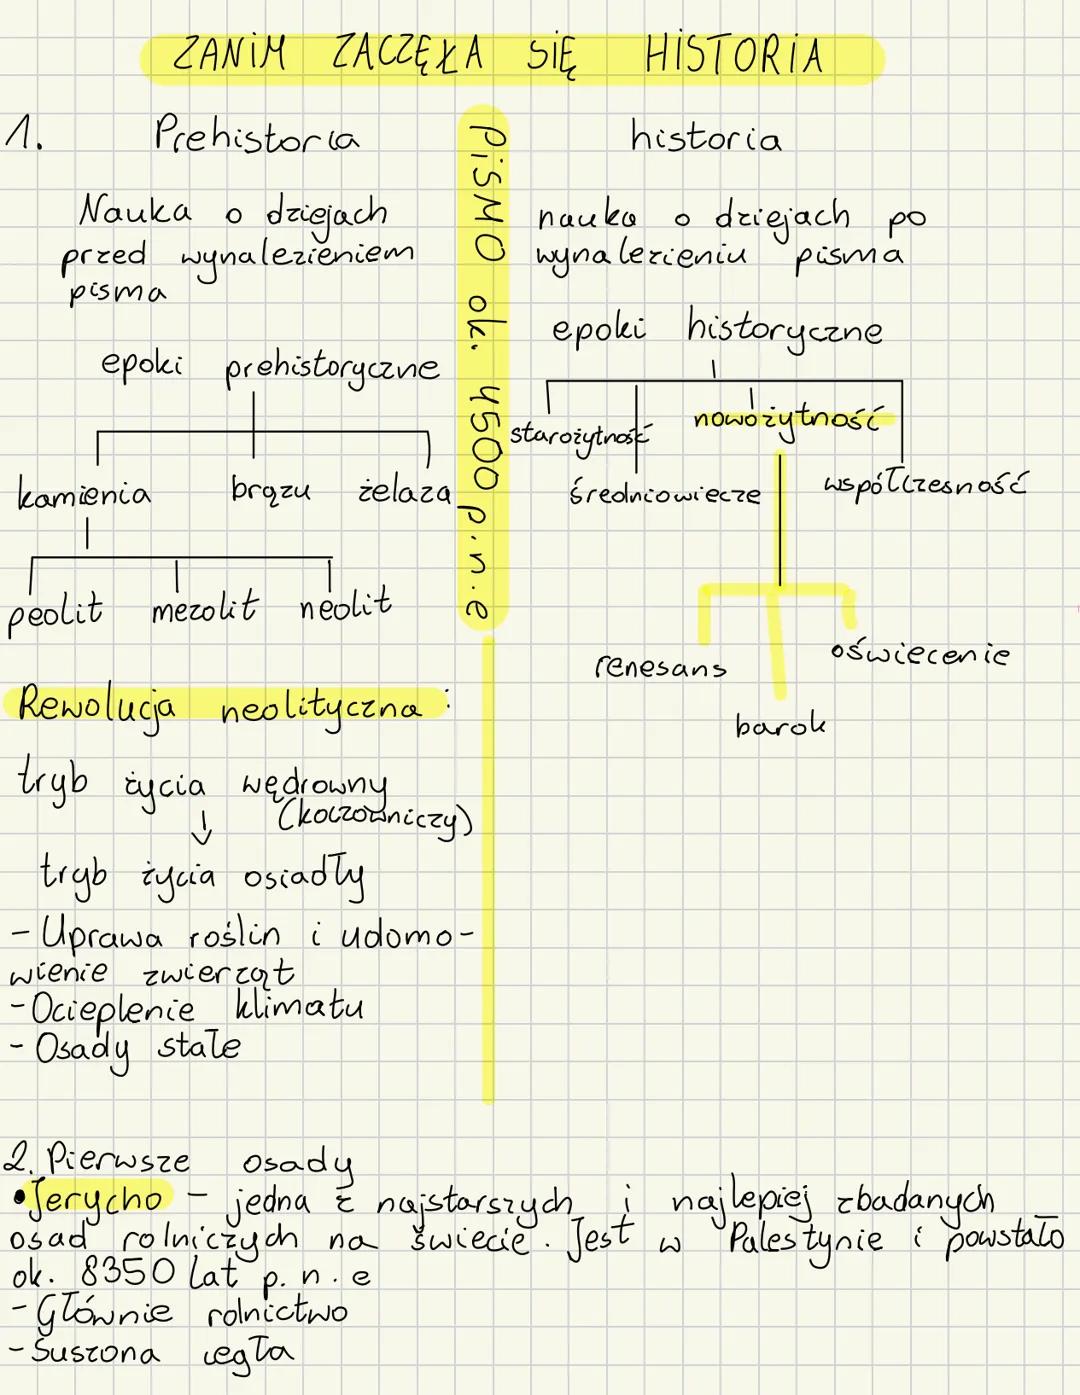 ZANIM ZACZĘŁA SIĘ HISTORIA
1. Prehistoria
Nauka o dziejach
przed wynalezieniem
pisma
epoki prehistoryczne
kamienia brązu żelaza
peolit mezolit neolit
Rewolucja neolityczna:
tryb życia wędrowny
(koczowniczy)
↓
tryb życia osiadły
- Uprawa roślin i udomo-
wienie zwierząt
- Ocieplenie klimatu
- Osady stałe
PISMO ok. 4500 p.n.e
historia
nauka o dziejach po
wynalezieniu pisma
epoki historyczne
starożytność nowożytność
średniowiecze współczesność
renesans oświecenie
barok
2. Pierwsze osady
•Jerycho - jedna z najstarszych i najlepiej zbadanych
osad rolniczych na świecie. Jest w Palestynie i powstało
ok. 8350 lat p.n.e
- Głównie rolnictwo
- Suszona cegła